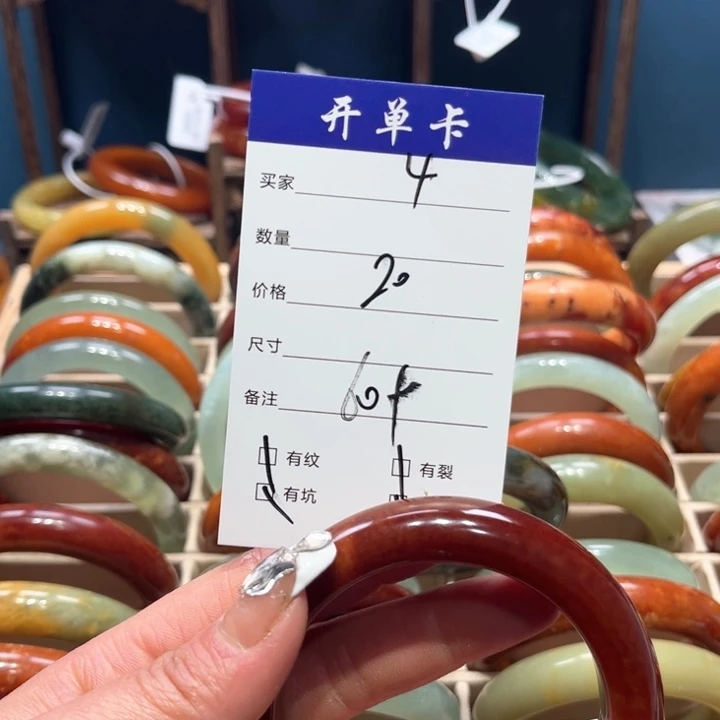 开单卡
买家 4
数量
价格 20
尺寸
备注 60+
有纹 有裂
有坑